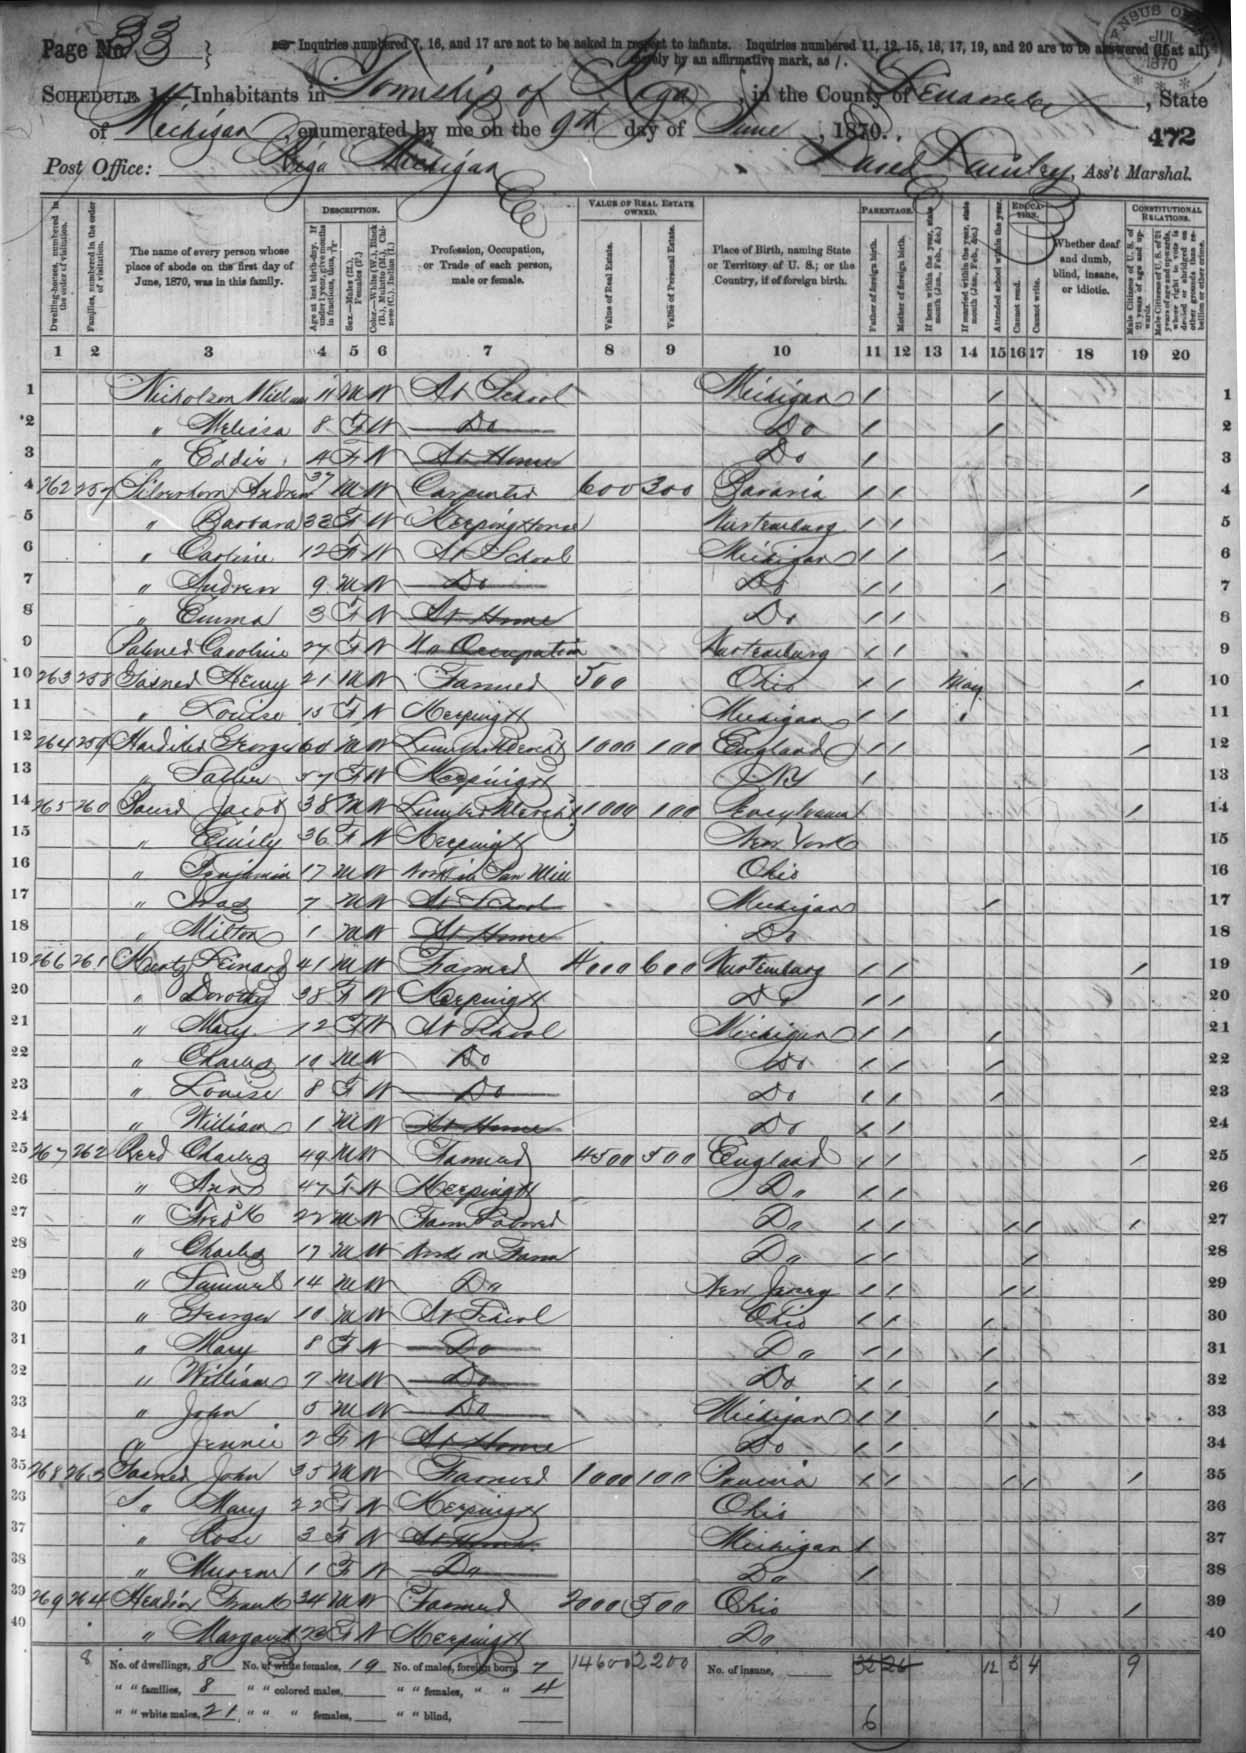 Page No. 33
Inquiries numbered 7, 16, and 17 are not to be asked in respect to infants. Inquiries numbered 11, 12, 15, 16, 17, 19, and 20 are to be answered (if at all) merely by an affirmative mark, as /.
SCHEDULE 1.—Inhabitants in Township of Riga, in the County of Lenawee, State
of Michigan, enumerated by me on the 9th day of June, 1870.
472
Post Office: Riga Michigan
Ass't Marshal.
DESCRIPTION.
VALUE OF REAL ESTATE OWNED.
PARENTAGE.
EDUCATION.
CONSTITUTIONAL RELATIONS.
Dwelling-houses, numbered in the order of visitation.
Families, numbered in the order of visitation.
The name of every person whose place of abode on the first day of June, 1870, was in this family.
Sex.—Males (M.), Females (F.)
Profession, Occupation, or Trade of each person, male or female.
Value of Real Estate.
Value of Personal Estate.
Place of Birth, naming State or Territory of U. S.; or the Country, if of foreign birth.
Father of foreign birth.
Mother of foreign birth.
If born within the year, state month (Jan., Feb., &c.)
If married within the year, state month (Jan., Feb., &c.)
Attended school within the year.
Cannot read.
Cannot write.
Whether deaf and dumb, blind, insane, or idiotic.
1 2 3 4 5 6 7 8 9 10 11 12 13 14 15 16 17 18 19 20
1 Nicholson William 11 M W At School Michigan / / 1
2 " Melissa 8 F W Do Do / / 2
3 " Eddie 4 F W At Home Do / 3
4 262 257 Silverhorn Andrew 37 M W Carpenter 600 300 Bavaria / / / 4
5 " Barbara 32 F W Keeping House Wurtemburg / / 5
6 " Caroline 12 F W At School Michigan / / / 6
7 " Andrew 9 M W Do Do / / / 7
8 " Emma 3 F W At Home Do / / 8
9 Caroline 27 F W No Occupation Wurtemburg / / 9
10 263 258 Henry 21 M W Farmer 500 Ohio / / May / 10
11 " Louise 15 F W Keeping H Michigan / / 11
12 264 259 George 60 M W Lumber Merch't 1000 100 England / / / 12
13 " Sallie 57 F W Keeping H NY / 13
14 265 260 Jacob 38 M W Lumber Merch't 1000 100 / 14
15 " Emily 36 F W Keeping H New York 15
16 " Benjamin 17 M W Work in Saw Mill Ohio 16
17 " 7 M W At School Michigan / 17
18 " Milton 1 M W At Home Do 18
19 266 261 41 M W Farmer 4000 600 Wurtemburg / / / 19
20 " Dorothy 38 F W Keeping H Do / / 20
21 " Mary 12 F W At School Michigan / / / 21
22 " Charles 10 M W Do Do / / / 22
23 " Louise 8 F W Do Do / / / 23
24 " William 1 M W At Home Do / / 24
25 267 262 Reed Charles 49 M W Farmer 4500 500 England / / / 25
26 " Ann 47 F W Keeping H Do / / 26
27 " Fred'k 22 M W Farm Laborer Do / / / / / 27
28 " Charles 17 M W Work on Farm Do / / / 28
29 " Samuel 14 M W Do New Jersey / / / / 29
30 " George 10 M W At School Ohio / / / 30
31 " Mary 8 F W Do Do / / / 31
32 " William 7 M W Do Do / / / 32
33 " John 5 M W Do Michigan / / / 33
34 " Jennie 2 F W At Home Do / / 34
35 268 263 John 35 M W Farmer 1000 100 / / / / / 35
36 " Mary 22 F W Keeping H Ohio 36
37 " Rose 3 F W At Home Michigan / 37
38 " 1 F W Do Do / 38
39 269 264 Frank 34 M W Farmer 2000 500 Ohio / 39
40 " Margaret 23 F W Keeping H Do 40
8 No. of dwellings, 8 No. of white females, 19 No. of males, foreign born, 7 14600 2200 No. of insane, 32 26 12 3 4 9
" " families, 8 " " colored males, " " females, " " 4
" " white males, 21 " " " females, " " blind,
6